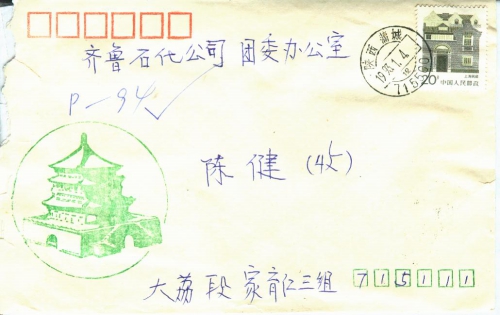 齐鲁石化公司 团委办公室
P-94
陈健（收）
大荔段家育红三组
715111
陕西 蒲城
1995.1.4
715500
20分
中国人民邮政